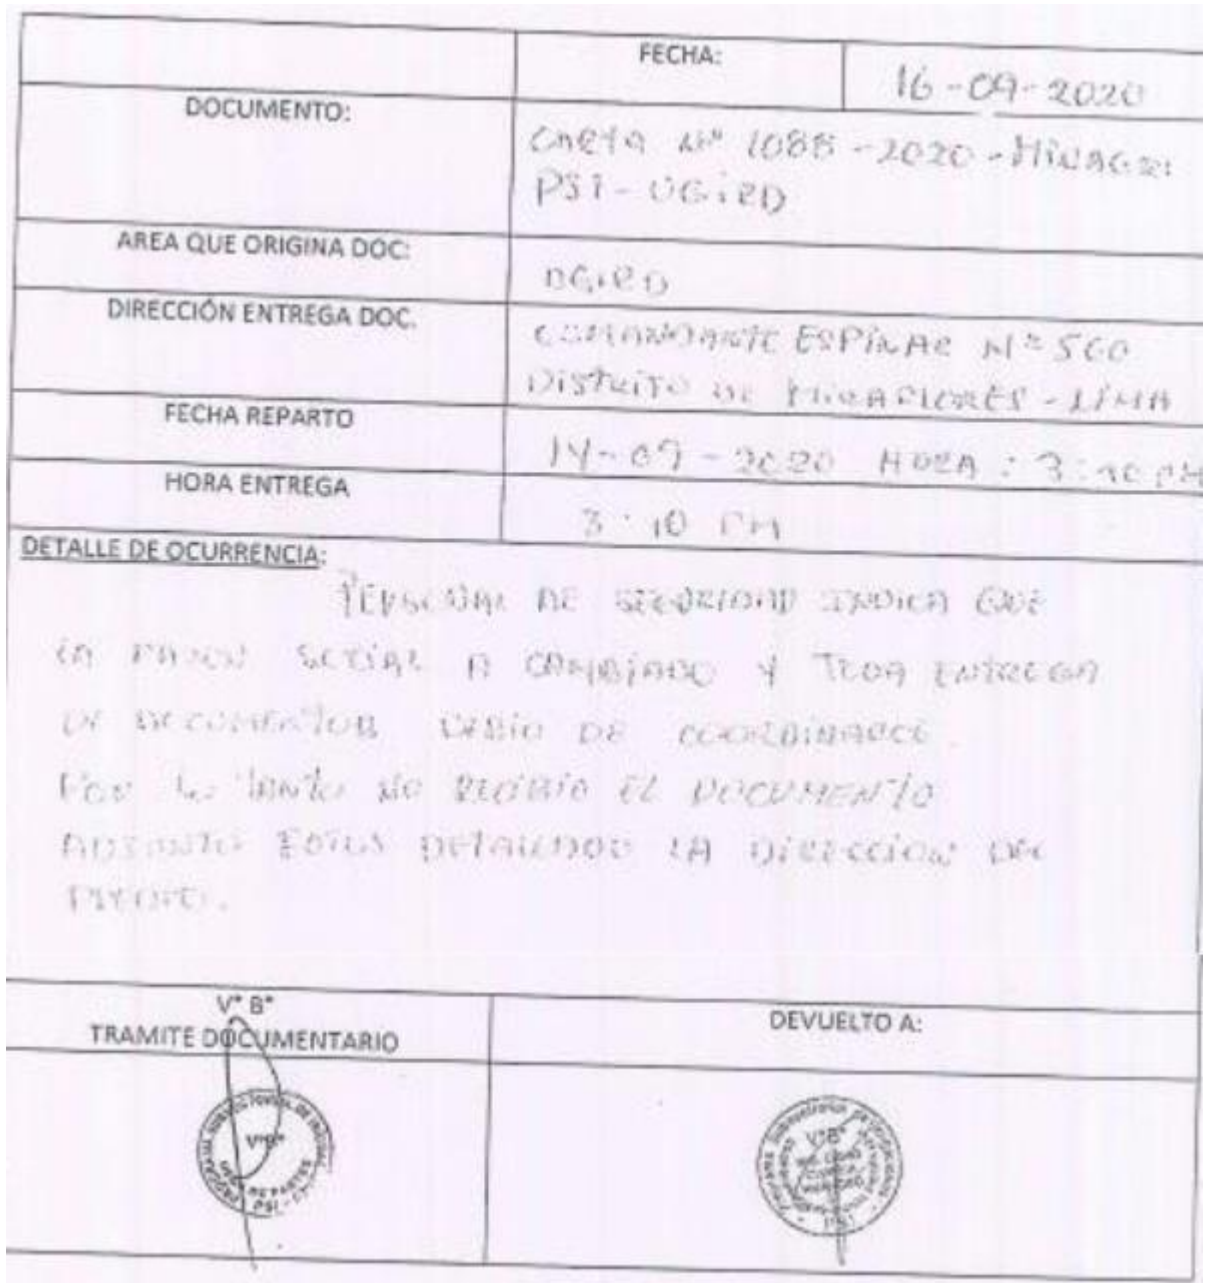 FECHA:
16-09-2020
DOCUMENTO:
CARTA Nº 1088-2020-MINAGRI
PSI-UGIRD
AREA QUE ORIGINA DOC:
UGIRD
DIRECCIÓN ENTREGA DOC.
COMANDANTE ESPINAR Nº 560
DISTRITO DE MIRAFLORES - LIMA
FECHA REPARTO
14-09-2020 HORA: 3:10 PM
HORA ENTREGA
3:10 PM
DETALLE DE OCURRENCIA:
PERSONAL DE SEGURIDAD INDICA QUE
LA RAZON SOCIAL A CAMBIADO Y TODA ENTREGA
DE DOCUMENTOS DEBIO DE COORDINARCE.
POR LO TANTO NO RECIBIO EL DOCUMENTO
ADJUNTO FOTOS DETALLANDO LA DIRECCION DEL
PREDIO.
V° B°
TRAMITE DOCUMENTARIO
DEVUELTO A:
V°B°
PSI
V°B°
PSI